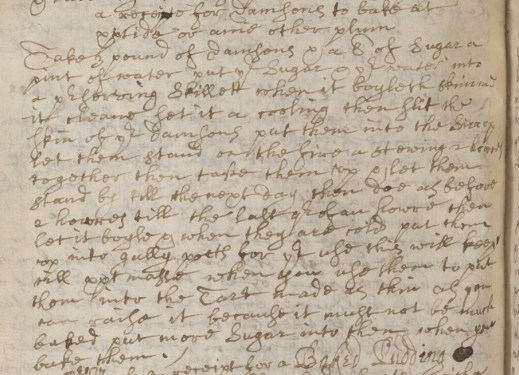 a receipt for Damsons to bake at
xptide or anie other plum
Take 3 pound of damsons & a £ of Sugar a
pint of water put yͤ Sugar & yͤ water into
a preserving Skillett when it boyleth skimme
it cleane let it a cooling then slit the
skin of yͤ Damsons put them into the Sirrep
let them stand on the fire a stewing 2 howres
together then take them up & let them
stand by till the next day then doe as before
2 howres till the last of an howre then
let it boyle & when they are cold put them
up into gully potts for yͬ use this will keep
till when you use them to put
them into the Tart made as thin as you
can raise it because it must not be much
baked put more Sugar into them when you
bake them.
receipt for a Baked Pudding